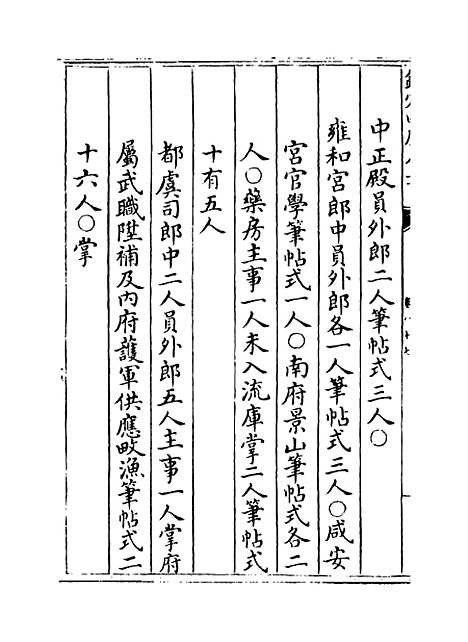 中正殿員外郎二人筆帖式三人○
雍和宮郎中員外郎各一人筆帖式三人○咸安
宮官學筆帖式一人○南府景山筆帖式各二
人○藥房主事一人未入流庫掌二人筆帖式
十有五人
都虞司郎中二人員外郎五人主事一人掌府
屬武職陞補及內府護軍供應畋漁筆帖式二
十六人○掌